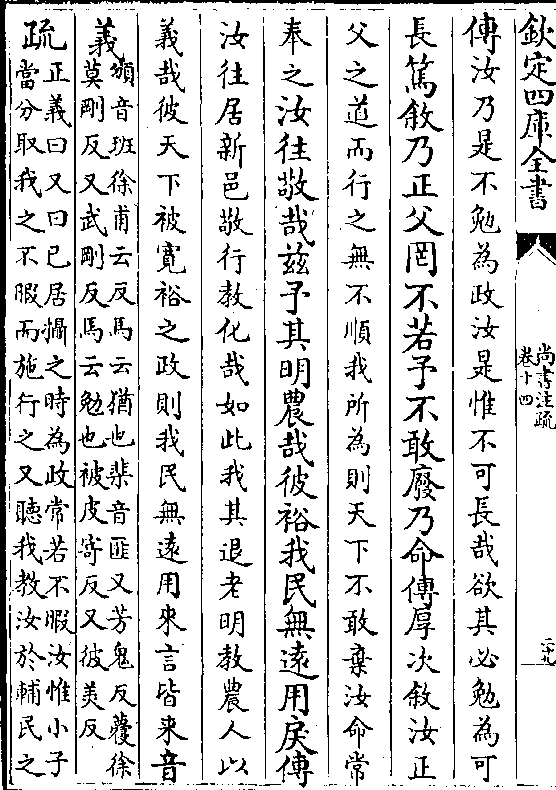 欽定四庫全書
尚書注疏
卷十四
二十九
傳汝乃是不勉為政汝是惟不可長哉欲其必勉為可
長篤敘乃正父罔不若予不敢廢乃命傳厚次敘汝正
父之道而行之無不順我所為則天下不敢棄汝命常
奉之汝往敬哉茲予其明農哉彼裕我民無遠用戾傳
汝往居新邑敬行教化哉如此我其退老明教農人以
義哉彼天下被寛裕之政則我民無遠用來言皆來音
義頒音班徐甫云反馬云猶也棐音匪又芳鬼反䕫徐
莫剛反又武剛反馬云勉也被皮寄反又彼美反
疏正義曰又曰已居攝之時為政常若不暇汝惟小子
當分取我之不暇而施行之又聽我教汝於輔民之